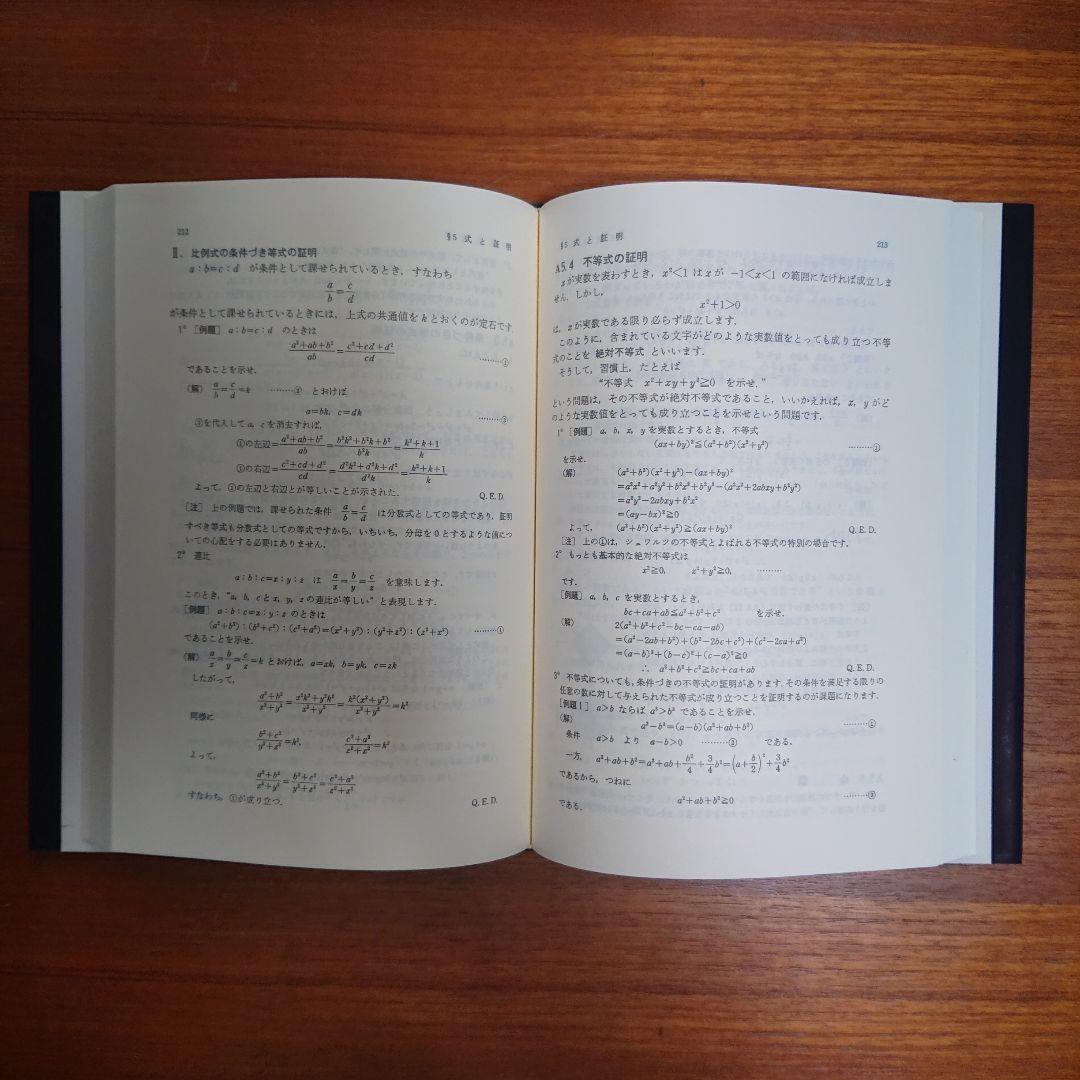 212
§5 式 と 証 明
Ⅱ. 比例式の条件づき等式の証明
a:b=c:d が条件として課せられているとき,すなわち
a/b = c/d
が条件として課せられているときには,上式の共通値を k とおくのが定石です.
1° [例題] a:b=c:d のときは
(a²+ab+b²)/ab = (c²+cd+d²)/cd ………①
であることを示せ.
(解) a/b = c/d = k ………② とおけば
a=bk, c=dk ………③
③を代入して a, c を消去すれば,
①の左辺= (a²+ab+b²)/ab = (b²k²+b²k+b²)/b²k = (k²+k+1)/k
①の右辺= (c²+cd+d²)/cd = (d²k²+d²k+d²)/d²k = (k²+k+1)/k
よって,①の左辺と右辺とが等しいことが示された. Q.E.D.
[注] 上の例題では,課せられた条件 a/b = c/d は分数式としての等式であり,証明
すべき等式も分数式としての等式ですから,いちいち,分母を0とするような値につ
いての心配をする必要はありません.
2° 連比
a:b:c=x:y:z は a/x = b/y = c/z を意味します.
このとき,“a, b, c と x, y, z の連比が等しい” と表現します.
[例題] a:b:c=x:y:z のときは
(a²+b²):(b²+c²):(c²+a²)=(x²+y²):(y²+z²):(z²+x²) ………①
であることを示せ.
(解) a/x = b/y = c/z = k とおけば, a=xk, b=yk, c=zk
したがって,
(a²+b²)/(x²+y²) = (x²k²+y²k²)/(x²+y²) = k²(x²+y²)/(x²+y²) = k²
同様に
(b²+c²)/(y²+z²) = k², (c²+a²)/(z²+x²) = k²
よって,
(a²+b²)/(x²+y²) = (b²+c²)/(y²+z²) = (c²+a²)/(z²+x²)
すなわち,①が成り立つ. Q.E.D.
§5 式 と 証 明
213
A5.4 不等式の証明
x が実数を表わすとき, x²<1 は x が −1<x<1 の範囲になければ成立しま
せん.しかし,
x²+1>0
は, x が実数である限り必らず成立します.
このように,含まれている文字がどのような実数値をとっても成り立つ不等
式のことを 絶対不等式 といいます.
そうして,習慣上,たとえば
“不等式 x²+xy+y²≧0 を示せ.”
という問題は,その不等式が絶対不等式であること,いいかえれば, x, y がど
のような実数値をとっても成り立つことを示せという問題です.
1° [例題] a, b, x, y を実数とするとき,不等式
(ax+by)²≦(a²+b²)(x²+y²) ………①
を示せ.
(解) (a²+b²)(x²+y²)−(ax+by)²
=a²x²+a²y²+b²x²+b²y²−(a²x²+2abxy+b²y²)
=a²y²−2abxy+b²x²
=(ay−bx)²≧0
よって, (a²+b²)(x²+y²)≧(ax+by)² Q.E.D.
[注] 上の①は,シュワルツの不等式とよばれる不等式の特別の場合です.
2° もっとも基本的な絶対不等式は
x²≧0, x²+y²≧0, ………
です.
[例題] a, b, c を実数とするとき,
bc+ca+ab≦a²+b²+c² を示せ.
(解) 2(a²+b²+c²−bc−ca−ab)
=(a²−2ab+b²)+(b²−2bc+c²)+(c²−2ca+a²)
=(a−b)²+(b−c)²+(c−a)²≧0
∴ a²+b²+c²≧bc+ca+ab Q.E.D.
3° 不等式についても,条件づきの不等式の証明があります.その条件を満足する限りの
任意の数に対して与えられた不等式が成り立つことを証明するのが課題になります.
[例題1] a>b ならば a³>b³ であることを示せ.
(解) a³−b³=(a−b)(a²+ab+b²) ………①
条件 a>b より a−b>0 ………② である.
一方, a²+ab+b²=a²+ab+b²/4+3/4b²=(a+b/2)²+3/4b²
であるから,つねに
a²+ab+b²≧0 ………③
である.